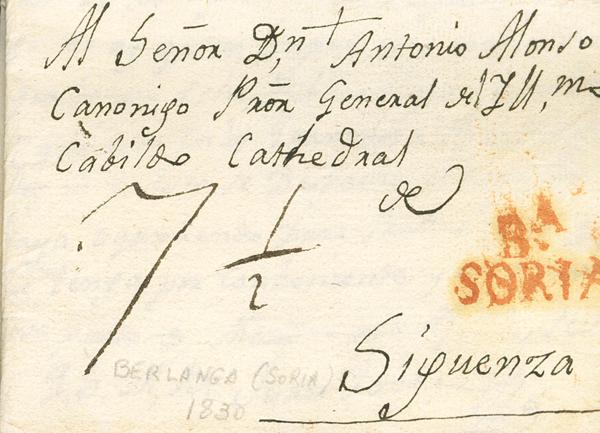 Al Señor D,n + Antonio Alonso
Canonigo Prõr General del Ill,mo
Cabildo Cathedral
de
7 1/2
B.A
SORIA
Siguenza
BERLANGA (SORIA)
1830